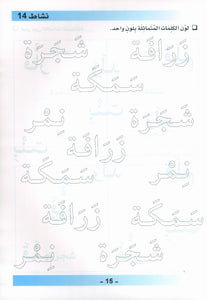 نشاط 14
❑ لوّن الكلمات المتماثلة بلون واحد.
زَرَافَة شَجَرَة
سَمَكَة
شَجَرَة نِمْر
زَرَافَة
نِمْر سَمَكَة
سَمَكَة زَرَافَة
شَجَرَة نِمْر
- 15 -